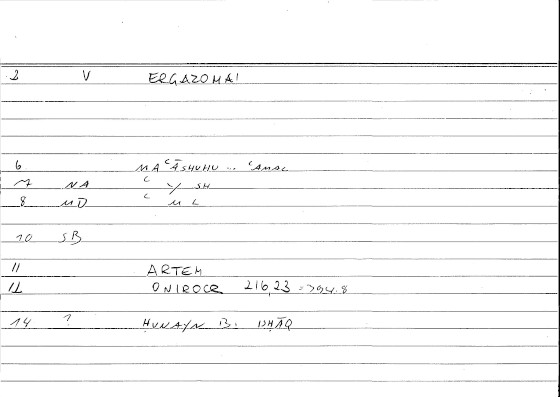 2 V ERGAZOMAI
6 MAʿĀSHUHU ... ʿAMAL
7 NA ʿ Y SH
8 MD ʿ M L
10 SB
11 ARTEM
12 ONIROCR 216,23 = 394.8
14 ? HUNAYN B. ISHĀQ